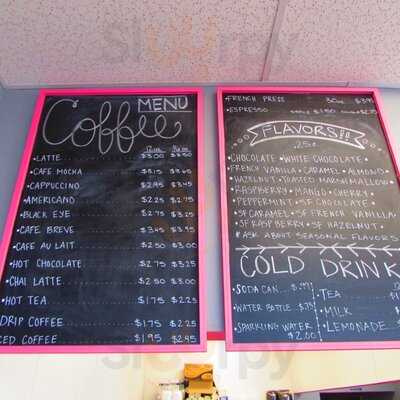 MENU
Coffee
12oz. 16oz
• LATTE $3.00 $3.50
• CAFE MOCHA $3.15 $3.65
• CAPPUCCINO $2.95 $3.45
• AMERICANO $2.25 $2.75
• BLACK EYE $2.75 $3.25
• CAFE BREVE $3.45 $3.95
• CAFE AU LAIT $2.50 $3.00
• HOT CHOCOLATE $2.75 $3.25
• CHAI LATTE $2.50 $3.00
• HOT TEA $1.75 $2.25
DRIP COFFEE $1.75 $2.25
ICED COFFEE $1.95 $2.45
• FRENCH PRESS $3.95
• ESPRESSO SINGLE $1.50 $2.75
FLAVORS
.25¢
• CHOCOLATE • WHITE CHOCOLATE •
FRENCH VANILLA • CARAMEL • ALMOND •
HAZELNUT • TOASTED MARSHMALLOW
RASPBERRY • MANGO • CHERRY •
PEPPERMINT • SF CHOCOLATE •
• SF CARAMEL • SF FRENCH VANILLA
• SF RASPBERRY • SF HAZELNUT •
* ASK ABOUT SEASONAL FLAVORS
COLD DRINK
• SODA CAN
• WATER BOTTLE $.75
• SPARKLING WATER
$2.00
• TEA
• MILK
• LEMONADE